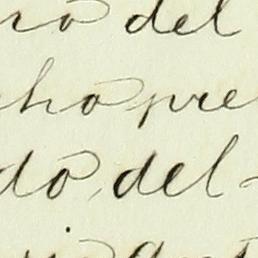 ro del
cho pre
do del-